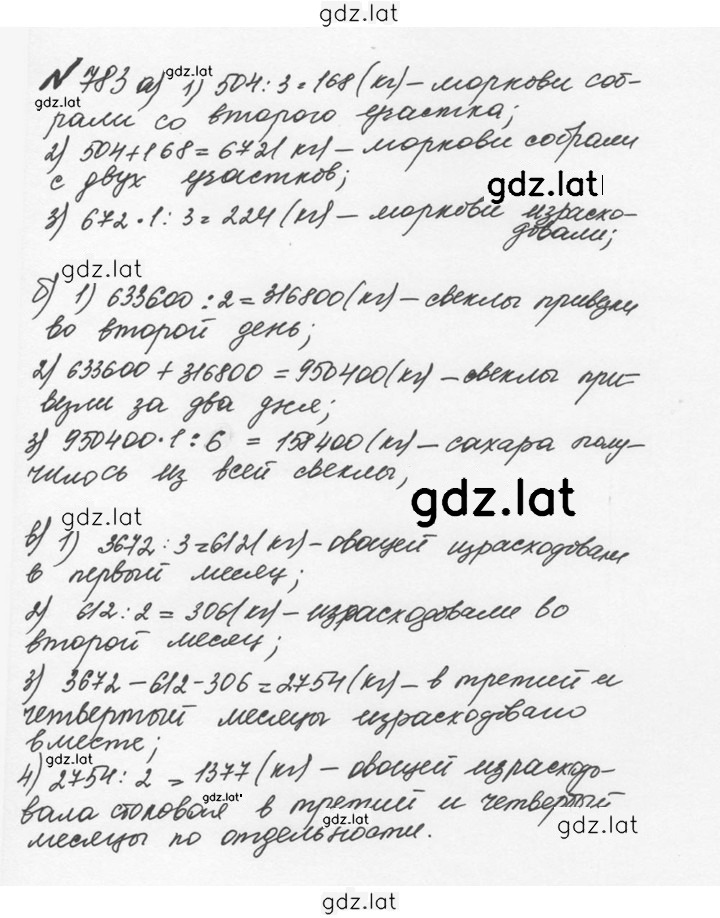 gdz.lat
№ 783 а) gdz.lat 1) 504 : 3 = 168 (кг) – моркови соб-
gdz.lat
рали со второго участка;
2) 504 + 168 = 672 (кг) – моркови собрали
с двух участков;
gdz.lat
3) 672 · 1 : 3 = 224 (кг) – моркови израсхо-
довали;
gdz.lat
б) 1) 633600 : 2 = 316800 (кг) – свеклы привезли
во второй день;
2) 633600 + 316800 = 950400 (кг) – свеклы при-
везли за два дня;
3) 950400 · 1 : 6 = 158400 (кг) – сахара полу-
чилось из всей свеклы,
gdz.lat
gdz.lat
в) 1) 3672 : 3 = 612 (кг) – овощей израсходовали
в первый месяц;
2) 612 : 2 = 306 (кг) – израсходовали во
второй месяц;
3) 3672 – 612 - 306 = 2754 (кг) – в третий и
четвертый месяцы израсходовано
вместе;
gdz.lat
4) 2754 : 2 = 1377 (кг) – овощей израсходо-
вала столовая gdz.lat в третий и четвертый
gdz.lat
месяцы по отдельности.
gdz.lat
gdz.lat